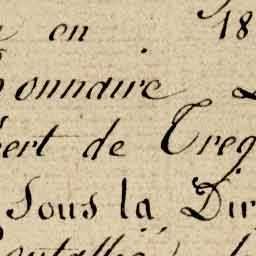 en 18
onnaire
ert de Treg
Sous la Dir